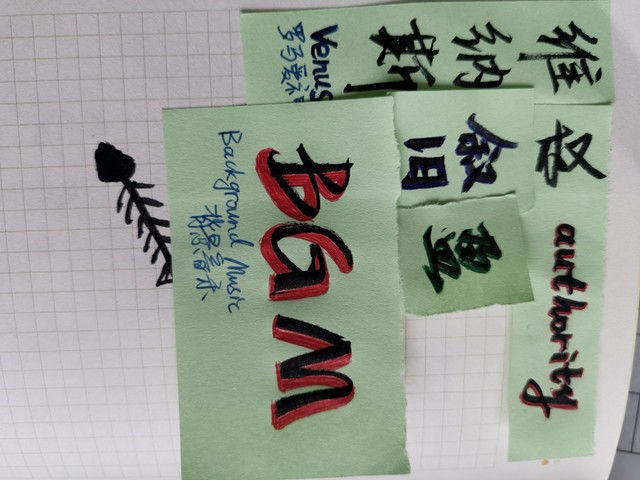 维纳斯
Venus
罗马爱
authority
叙旧
BGM
Background Music
背景音乐